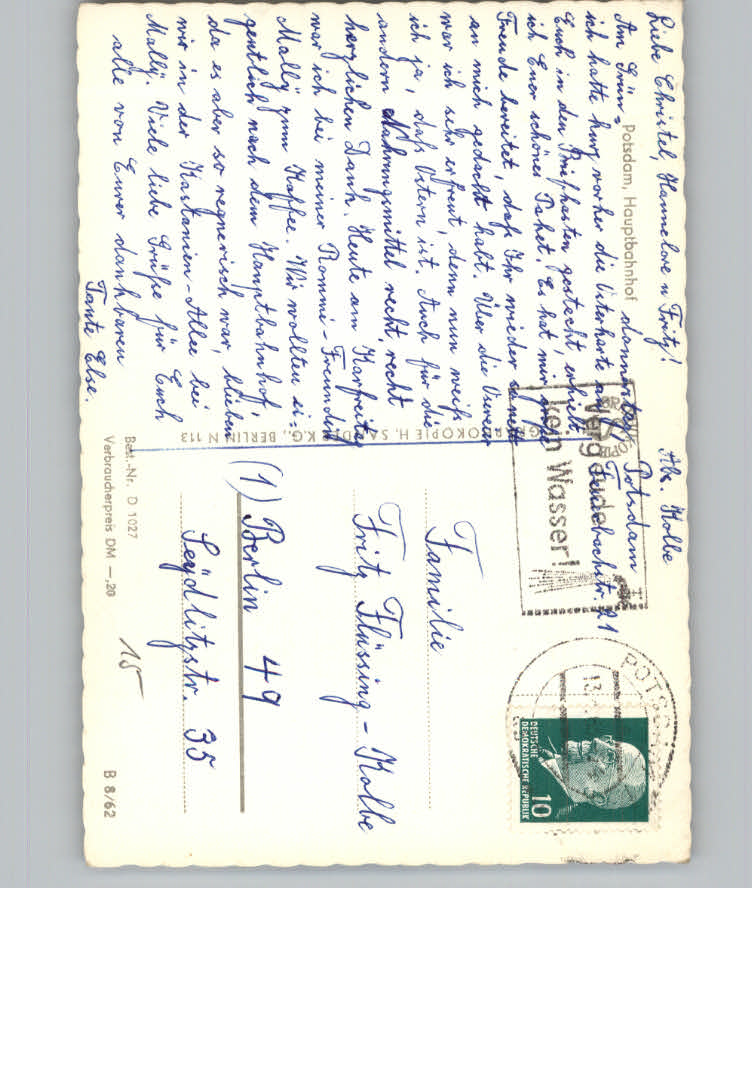 Liebe Christel, Hannelore u Fritz!
Potsdam, Hauptbahnhof
Am Grün=donnerstag,
ich hatte kurz vorher die Osterkarte an
Euch in den Briefkasten gesteckt, erhielt
ich Euer schönes Paket. Es hat mir große
Freude bereitet, daß Ihr wieder so nett
an mich gedacht habt. Über die
war ich sehr erfreut, denn nun weiß
ich ja, daß Ostern ist. Auch für die
andern Nahrungsmittel recht, recht
herzlichen Dank. Heute am Karfreitag
war ich bei meiner Rommé-Freundin
Mally zum Kaffee. Wir wollten ei=
gentlich nach dem Hauptbahnhof,
da es aber so regnerisch war, blieben
wir in der Kastanien-Allee bei
Mally. Viele liebe Grüße für Euch
alle von Eurer dankbaren
Tante Else.
H. SANDER K.G., BERLIN N 113
Best.-Nr. D 1027
Verbraucherpreis DM —,20
Abs. Kolbe
Potsdam
Feuerbachstr. 21
Vergeude
kein Wasser!
POTSDAM
13
DEUTSCHE
DEMOKRATISCHE REPUBLIK
10
Familie
Fritz Flüssing - Kolbe
(1) Berlin 49
Seydlitzstr. 35
15
B 8/62